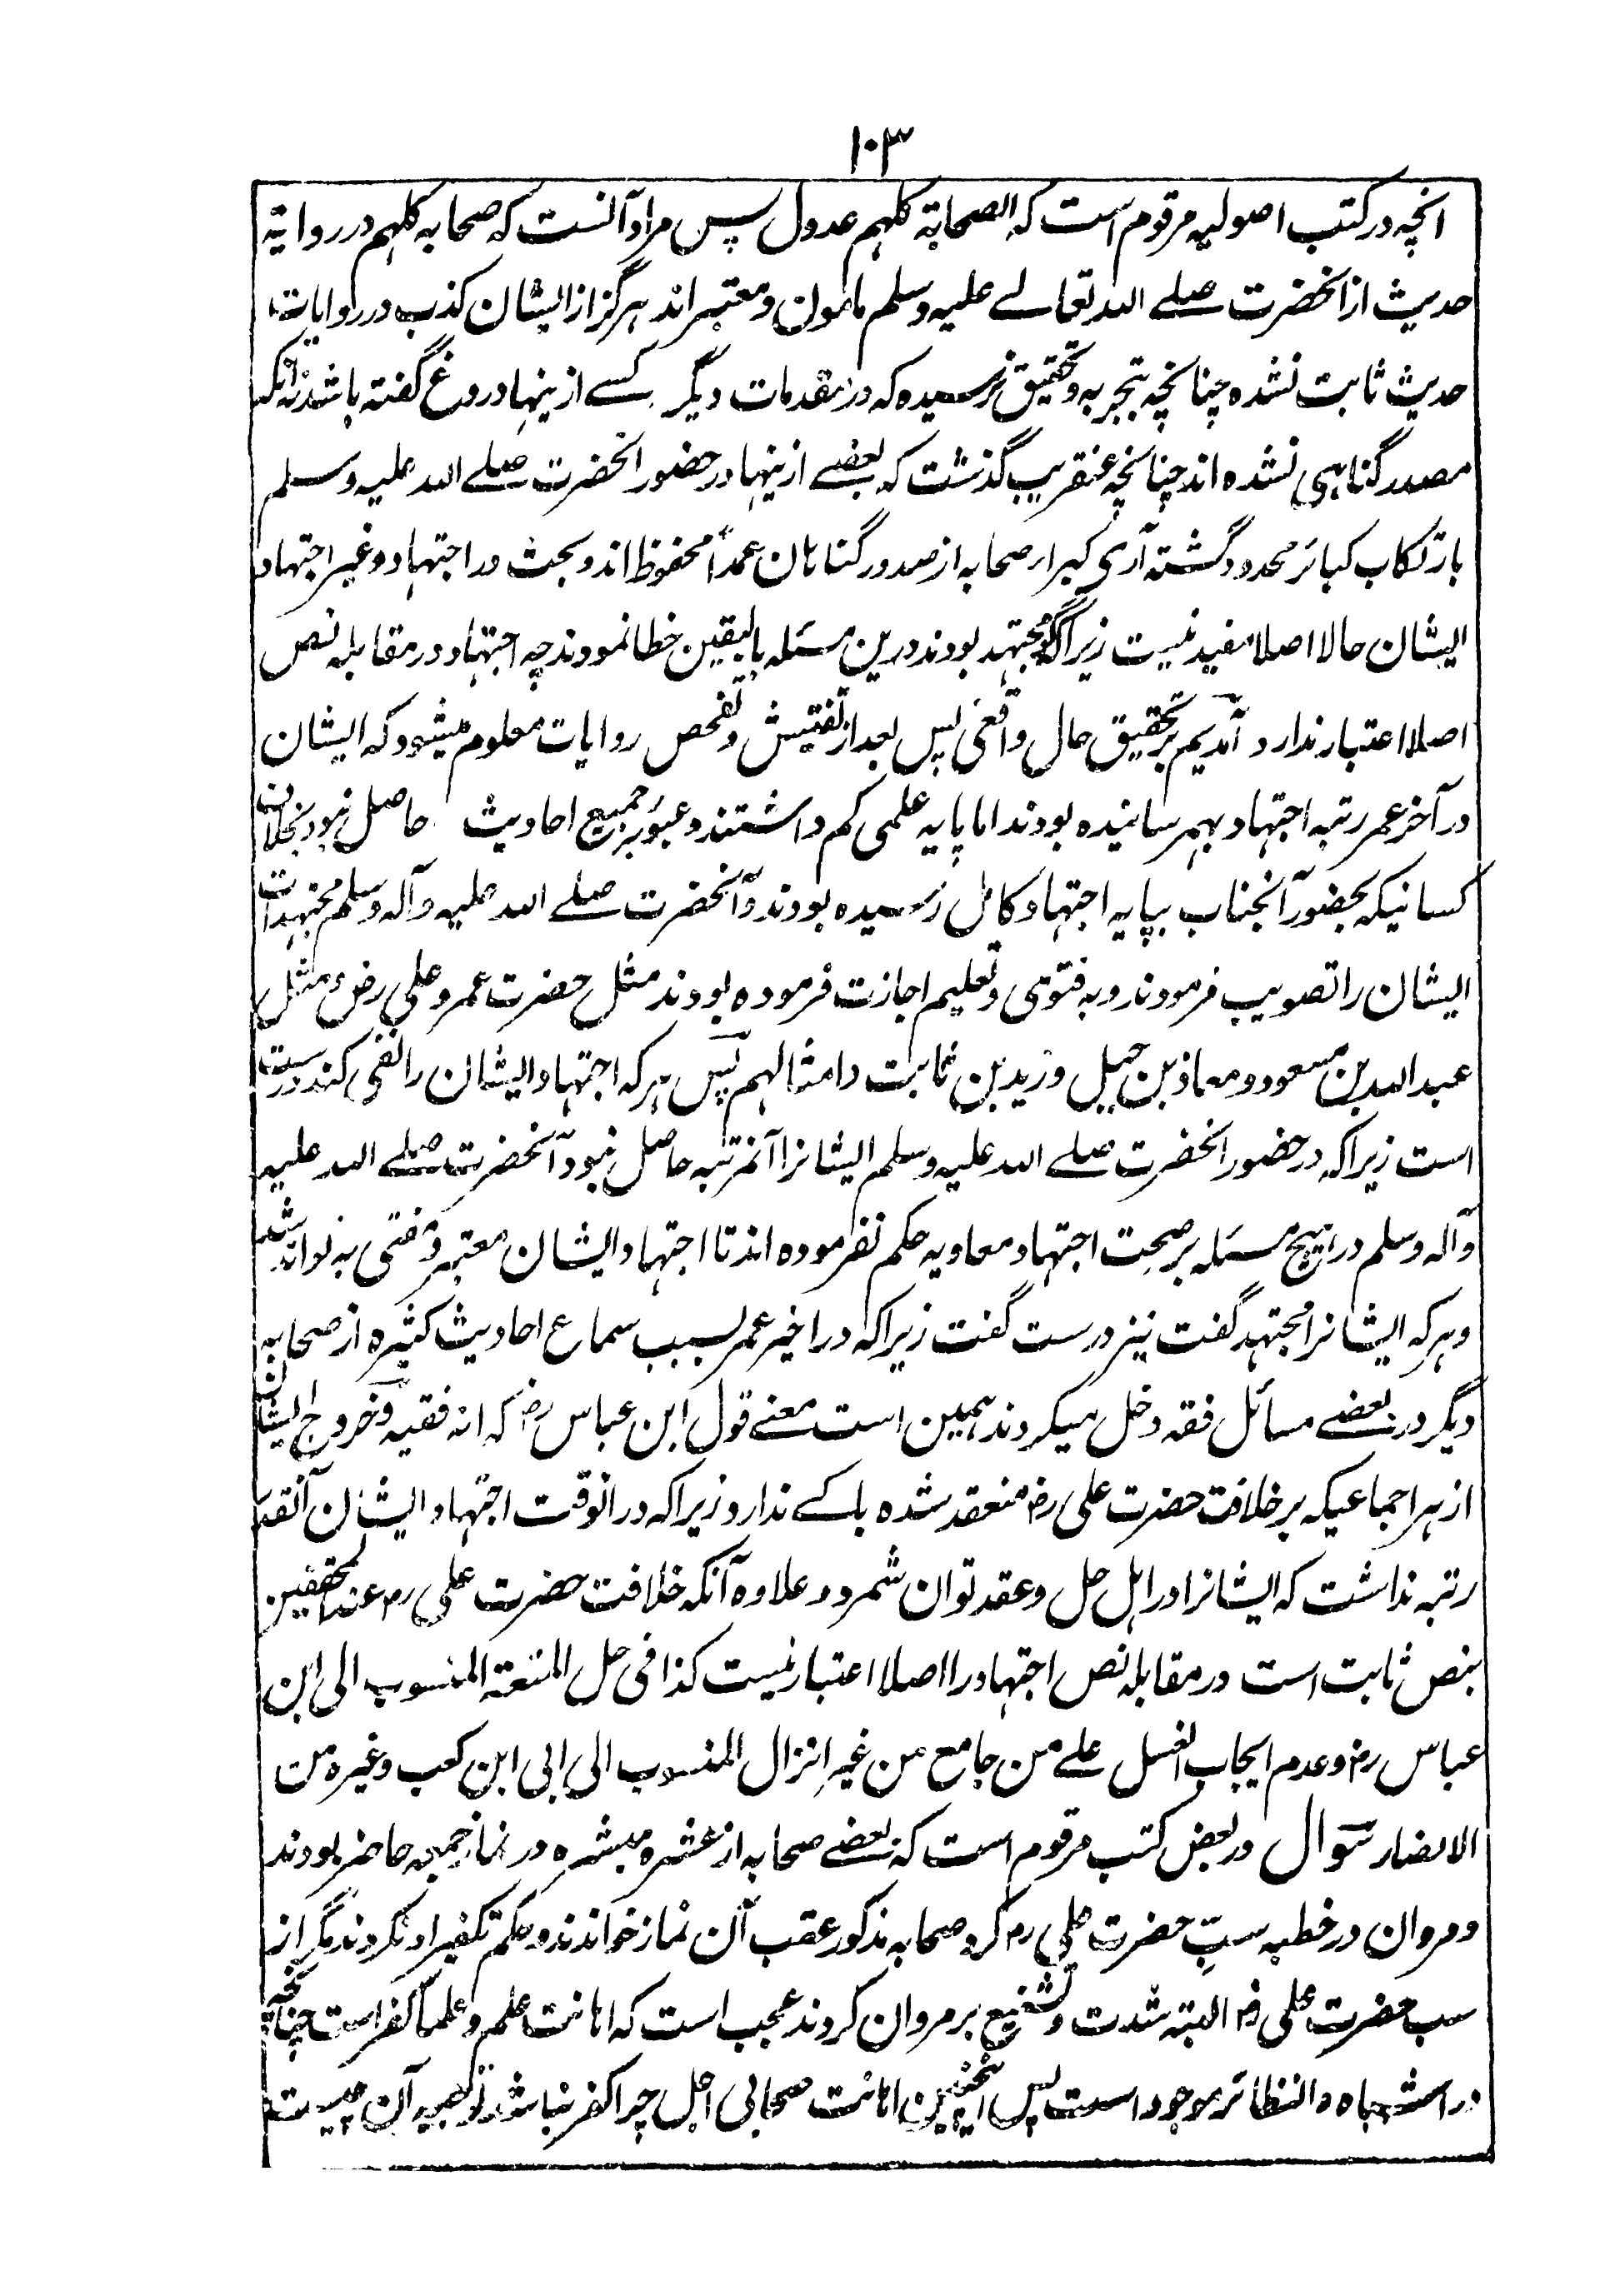 ۱۰۳
انچه در کتب اصولیه مرقوم است که الصحابة کلهم عدول پس مراد آنست که صحابه کلهم در روایة
حدیث از انحضرت صلے الله تعالے علیه وسلم مامون و معتبر اند هرگز از ایشان کذب در روایات
حدیث ثابت نشده چنانچه بتجربه و تحقیق نرسیده که در مقدمات دیگر کسے ازینها دروغ گفته باشد نه آنکه
مصدر گناهی نشده اند چنانچه عنقریب گذشت که بعضے ازینها در حضور انحضرت صلے الله علیه وسلم
بارتکاب کبائر محدود گشته آری کبراء صحابه از صدور گناهان عمداً محفوظ اند و بحث در اجتهاد و غیر اجتهاد
ایشان حالا اصلا مفید نیست زیراکه گو مجتهد بودند درین مسئله بالیقین خطا نمودند چه اجتهاد در مقابله نص
اصلا اعتبار ندارد آمدیم بر تحقیق حال واقعی پس بعد از تفتیش و تفحص روایات معلوم میشود که ایشان
در آخر عمر رتبه اجتهاد بهم رسانیده بودند اما پایه علمی کم داشتند و عبور بر جمیع احادیث حاصل نبود بخلاف
کسانیکه بحضور آنجناب بپایه اجتهاد کامل رسیده بودند و آنحضرت صلے الله علیه و آله وسلم مجتهدات
ایشان را تصویب فرمودند و به فتوی و تعلیم اجازت فرموده بودند مثل حضرت عمر و علی رض و مثل
عبدالله بن مسعود و معاذ بن جبل و زید بن ثابت و امثالهم پس هر که اجتهاد ایشان را نفی کند درست
است زیراکه در حضور انحضرت صلے الله علیه وسلم ایشانرا آنمرتبه حاصل نبود و آنحضرت صلے الله علیه
و آله وسلم در هیچ مسئله بر صحت اجتهاد معاویه حکم نفرموده اند تا اجتهاد ایشان معتبر و مفتی به تواند شد
و هر که ایشانرا مجتهد گفت نیز درست گفت زیراکه در اخیر عمر بسبب سماع احادیث کثیره از صحابه
دیگر در بعضے مسائل فقه دخل میکردند همین است معنے قول ابن عباس رض که انه فقیه و خروج ایشان
از هر اجماعیکه بر خلافت حضرت علی رض منعقد شده باکے ندارد زیراکه در انوقت اجتهاد ایشان آنقدر
رتبه نداشت که ایشانرا در اهل حل و عقد توان شمرد و علاوه آنکه خلافت حضرت علی رض عند المحققین
بنص ثابت است در مقابله نص اجتهاد را اصلا اعتبار نیست کذا فی حل المتعة المنسوب الی ابن
عباس رض و عدم ایجاب الغسل علے من جامع من غیر انزال المنسوب الی ابی ابن کعب و غیره من
الانصار سوال در بعض کتب مرقوم است که بعضے صحابه از عشره مبشره در نماز جمعه حاضر بودند
و مروان در خطبه سبّ حضرت علی رض کرد و صحابه مذکور عقب آن نماز خواندند و حکم تکفیر او نکردند مگر از
سب حضرت علی رض البته شدت و تشنیع بر مروان کردند عجب است که اهانت علم و علما کفر است چنانچه
در اشباه والنظائر موجود است پس اینچنین اهانت صحابی اجل چرا کفر نباشد توجیه آن چیست